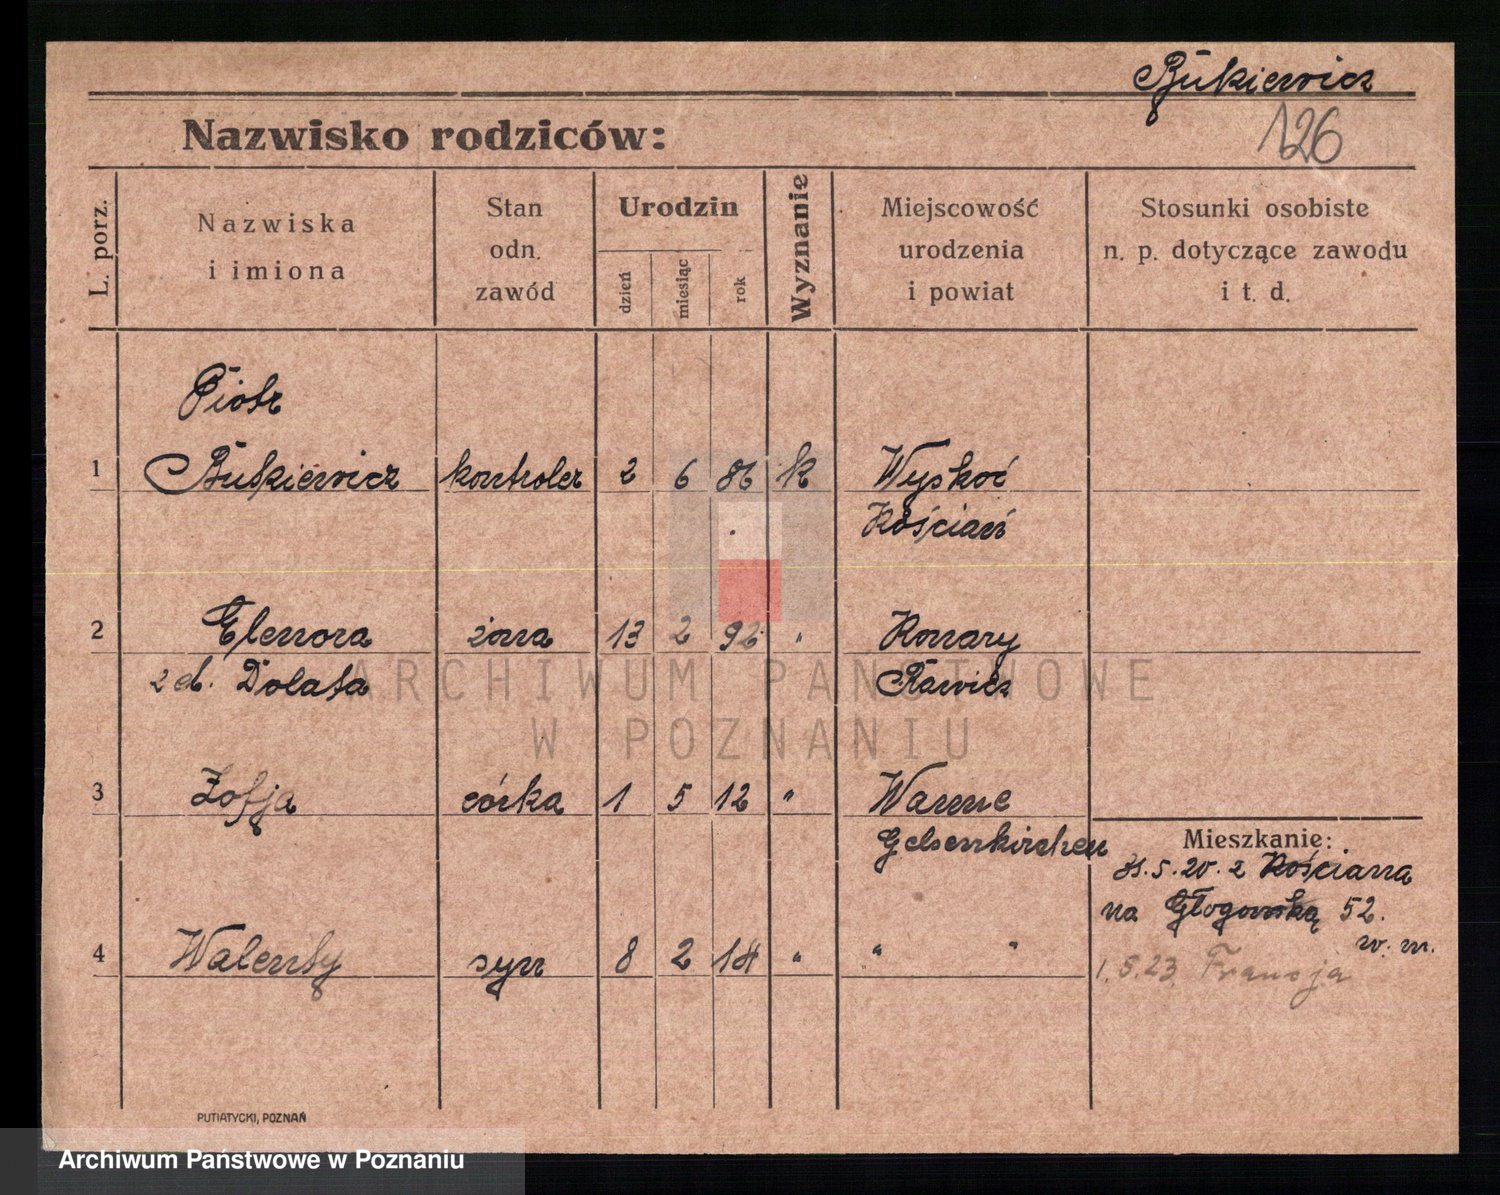 Bukiewicz
126
Nazwisko rodziców:
L. porz.
Nazwiska
i imiona
Stan
odn.
zawód
Urodzin
dzień
miesiąc
rok
Wyznanie
Miejscowość
urodzenia
i powiat
Stosunki osobiste
n. p. dotyczące zawodu
i t. d.
Piotr
1 Bukiewicz kontroler 2 6 86 k Wyskoć
Kościań
2 Elenora żona 13 2 92 " Konary
zd. Dolata Rawicz
3 Zofja córka 1 5 12 " Wanne
Gelsenkirchen
Mieszkanie:
5.20. z Kościana
na Głogowską 52.
w. m.
4 Walenty syn 8 2 14 " " "
1.5.23 Francja
PUTIATYCKI, POZNAŃ
ARCHIWUM PAŃSTWOWE
W POZNANIU
Archiwum Państwowe w Poznaniu